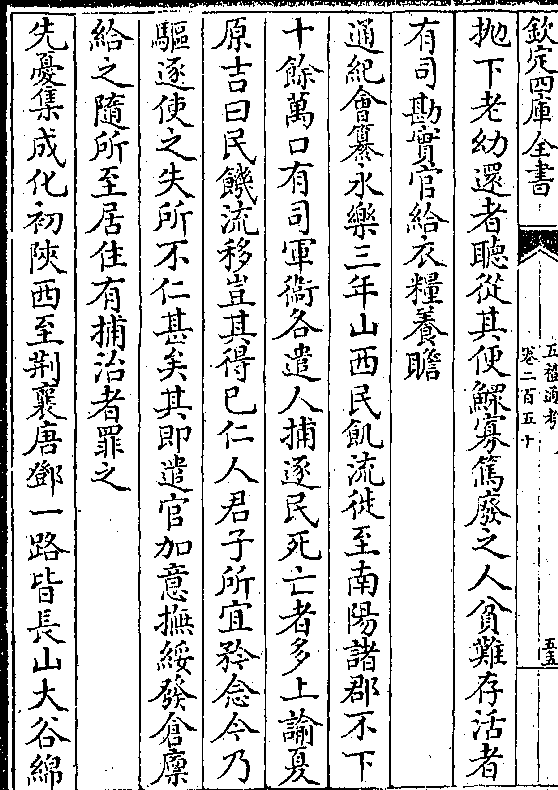 欽定四庫全書
五禮通考
卷二百五十
五五
抛下老幼還者聽從其便鰥寡篤廢之人貧難存活者
有司勘實官給衣糧養贍
通紀會纂永樂三年山西民飢流徙至南陽諸郡不下
十餘萬口有司軍衞各遣人捕逐民死亡者多上諭夏
原吉曰民饑流移豈其得已仁人君子所宜矜念今乃
驅逐使之失所不仁甚矣其即遣官加意撫綏發倉廪
給之隨所至居住有捕治者罪之
先憂集成化初陜西至荆襄唐鄧一路皆長山大谷綿